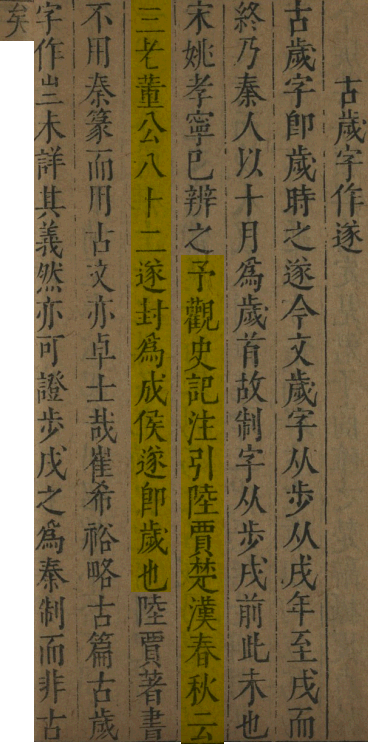 古歲字作遂
古歲字卽歲時之遂今文歲字从步从戌年至戌而
終乃秦人以十月爲歲首故制字从步戌前此未也
宋姚孝寧已辨之予觀史記注引陸賈楚漢春秋云
三老董公八十二遂封爲成侯遂卽歲也陸賈著書
不用秦篆而用古文亦卓士哉崔希裕略古篇古歲
字作亗未詳其義然亦可證步戌之爲秦制而非古
矣